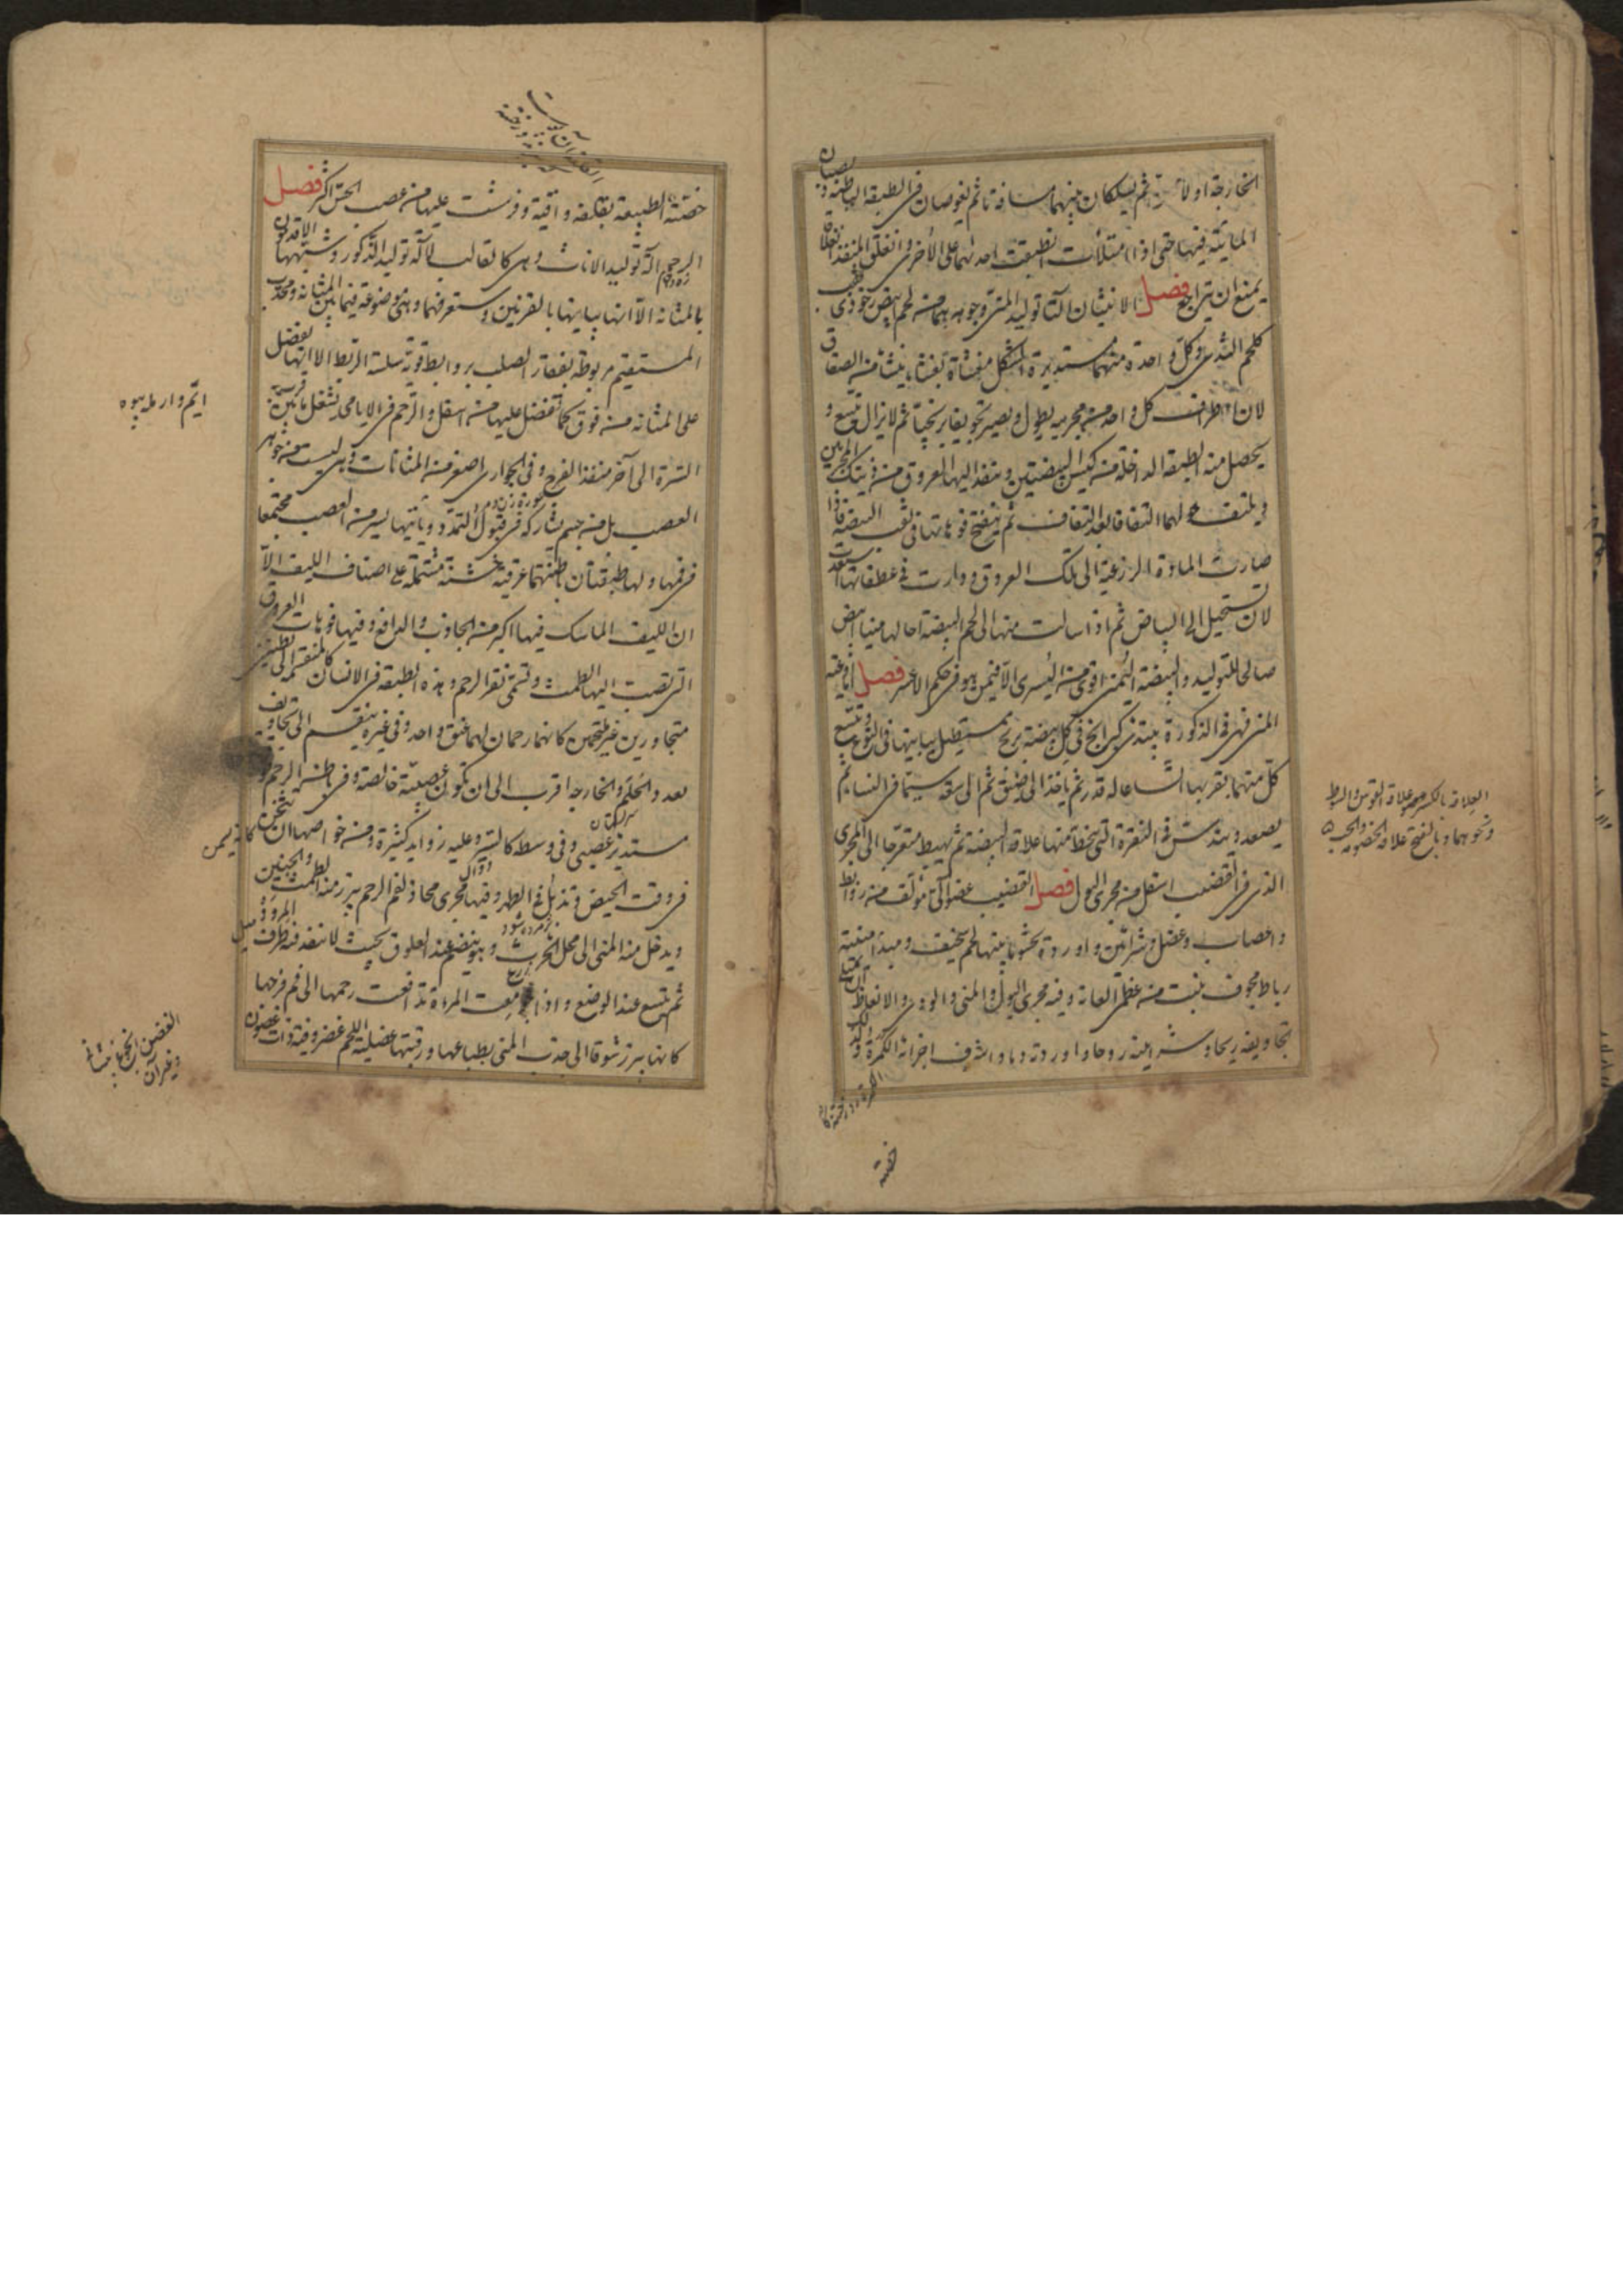 الخارجة اولا ثم يسلكان بينهما مسافة ما ثم يغوصان في الطبقة الباطنة و يصبان
المائية فيها حتى اذا امتلأت انطبقت احدىهما على الأخرى و انغلق المنفذ انغلاقا
يمنع ان يتراجع فصل الانثيان آلتا توليد المني و جوهرهما من لحم ابيض رخو غددي
كلحم الثدي و كل واحدة منهما مستديرة الشكل مغشاة بغشاء ينشأ من الصفاق
لان اطراف كل واحد من مجرييه يطول و يصير تجويفا بربخيا ثم لا يزال يتسع و
يحصل منه الطبقة الداخلة من كيس البيضتين و ينفذ اليها العروق من ذينك المجريين
و يلتف حولهما التفافا بعد التفاف ثم ينفتح فوهاتها في ثقب البيضة فاذا
صارت المادة الزرعية الى تلك العروق و دارت في عطفاتها استعدت
لان تستحيل الى البياض ثم اذا سالت منها الى لحم البيضة احالها منيا ابيض
صالحا للتوليد و البيضة اليمنى اقوى من اليسرى الا فيمن هو في حكم الاعسر فصل اما اوعية
المني فهي في الذكورة يبتدئ كبرابخ في كل بيضة بربخ مستطيل يباينها في النوع و يتسع
كل منهما بقربها اتساعا له قدر ثم ياخذ الى ضيق ثم الى سعة سيما في النساء ثم
يصعد و يندس في النقرة التي ينحط منها علاقة البيضة ثم يهبط متعرجا الى المجرى
الذي في القضيب اسفل من مجرى البول فصل القضيب عضو آلي مؤلف من روابط
و اعصاب و عضل و شرائين و اوردة يحشو ما بينها لحم سخيف و مبدأ منبته
رباط مجوف ينبت من عظمي العانة و فيه مجرى البول و المني و الودي و الانعاظ ان يمتلي
تجاويفه ريحا و شرايينه روحا و اوردته دما و اشرف اجزائه الكمرة و لذلك
العلاقة بالكسر علاقة القوس و السوط
و نحوهما و بالفتح علاقة الخصومة و الحب
خصته
خصته الطبيعة بقلفة واقية و فرشت عليها من عصب الحس اكثر فصل
الرحم آلة توليد الاناث و هي كالقالب لآلة توليد الذكور و شبهها الاقدمون
بالمثانة الا انها يباينها بالقرنين و ستعرفهما و هي موضوعة فيما بين المثانة و محدب
المستقيم مربوطة بفقار الصلب بروابط قوية سلسة الربط الا انها يفضل
على المثانة من فوق كما تفضل عليها من اسفل و الرحم في الايامى يشغل ما بين قريب
السرة الى آخر منفذ الفرج و في الجواري اصغر من المثانات و هي ليست من جوهر
العصب بل من جسم يشاركه في قبول التمدد و ياتيها يسير من العصب مجتمعا
في فمها و لها طبقتان باطنتهما عرقية خشنة مشتملة على اصناف الليف الا
ان الليف الماسك فيها اكثر من الجاذب و الدافع و فيها فوهات العروق
التي تصب اليها الطمث و تسمى نقر الرحم و هذه الطبقة في الانسان كالمنقسمة الى بطنين
متجاورين غير ملتحمين كانهما رحمان لهما عنق واحد و في غيره ينقسم الى تجاويف
بعدد الحلم و الخارجة اقرب الى ان تكون عصبية خالصة و في باطن الرحم
مستدير عصبي و في وسطه كالسير و عليه زوايد كثيرة و من خواصها ان تثخن كانه يسمن
في وقت الحيض و تذبل في الطهر و فيها مجرى محاذ لفم الرحم يبرز منه الطمث و الجنين
و يدخل منه المني الى محل الحرث و هو ينضم عند العلوق بحيث لا ينفذ فيه طرف المرود ميل
ثم يتسع عند الوضع و اذا جومعت المرأة تدافعت رحمها الى فم فرجها
كانها يبرز شوقا الى جذب المني بطباعها و رقبتها عضلية اللحم غضروفية ذات غضون